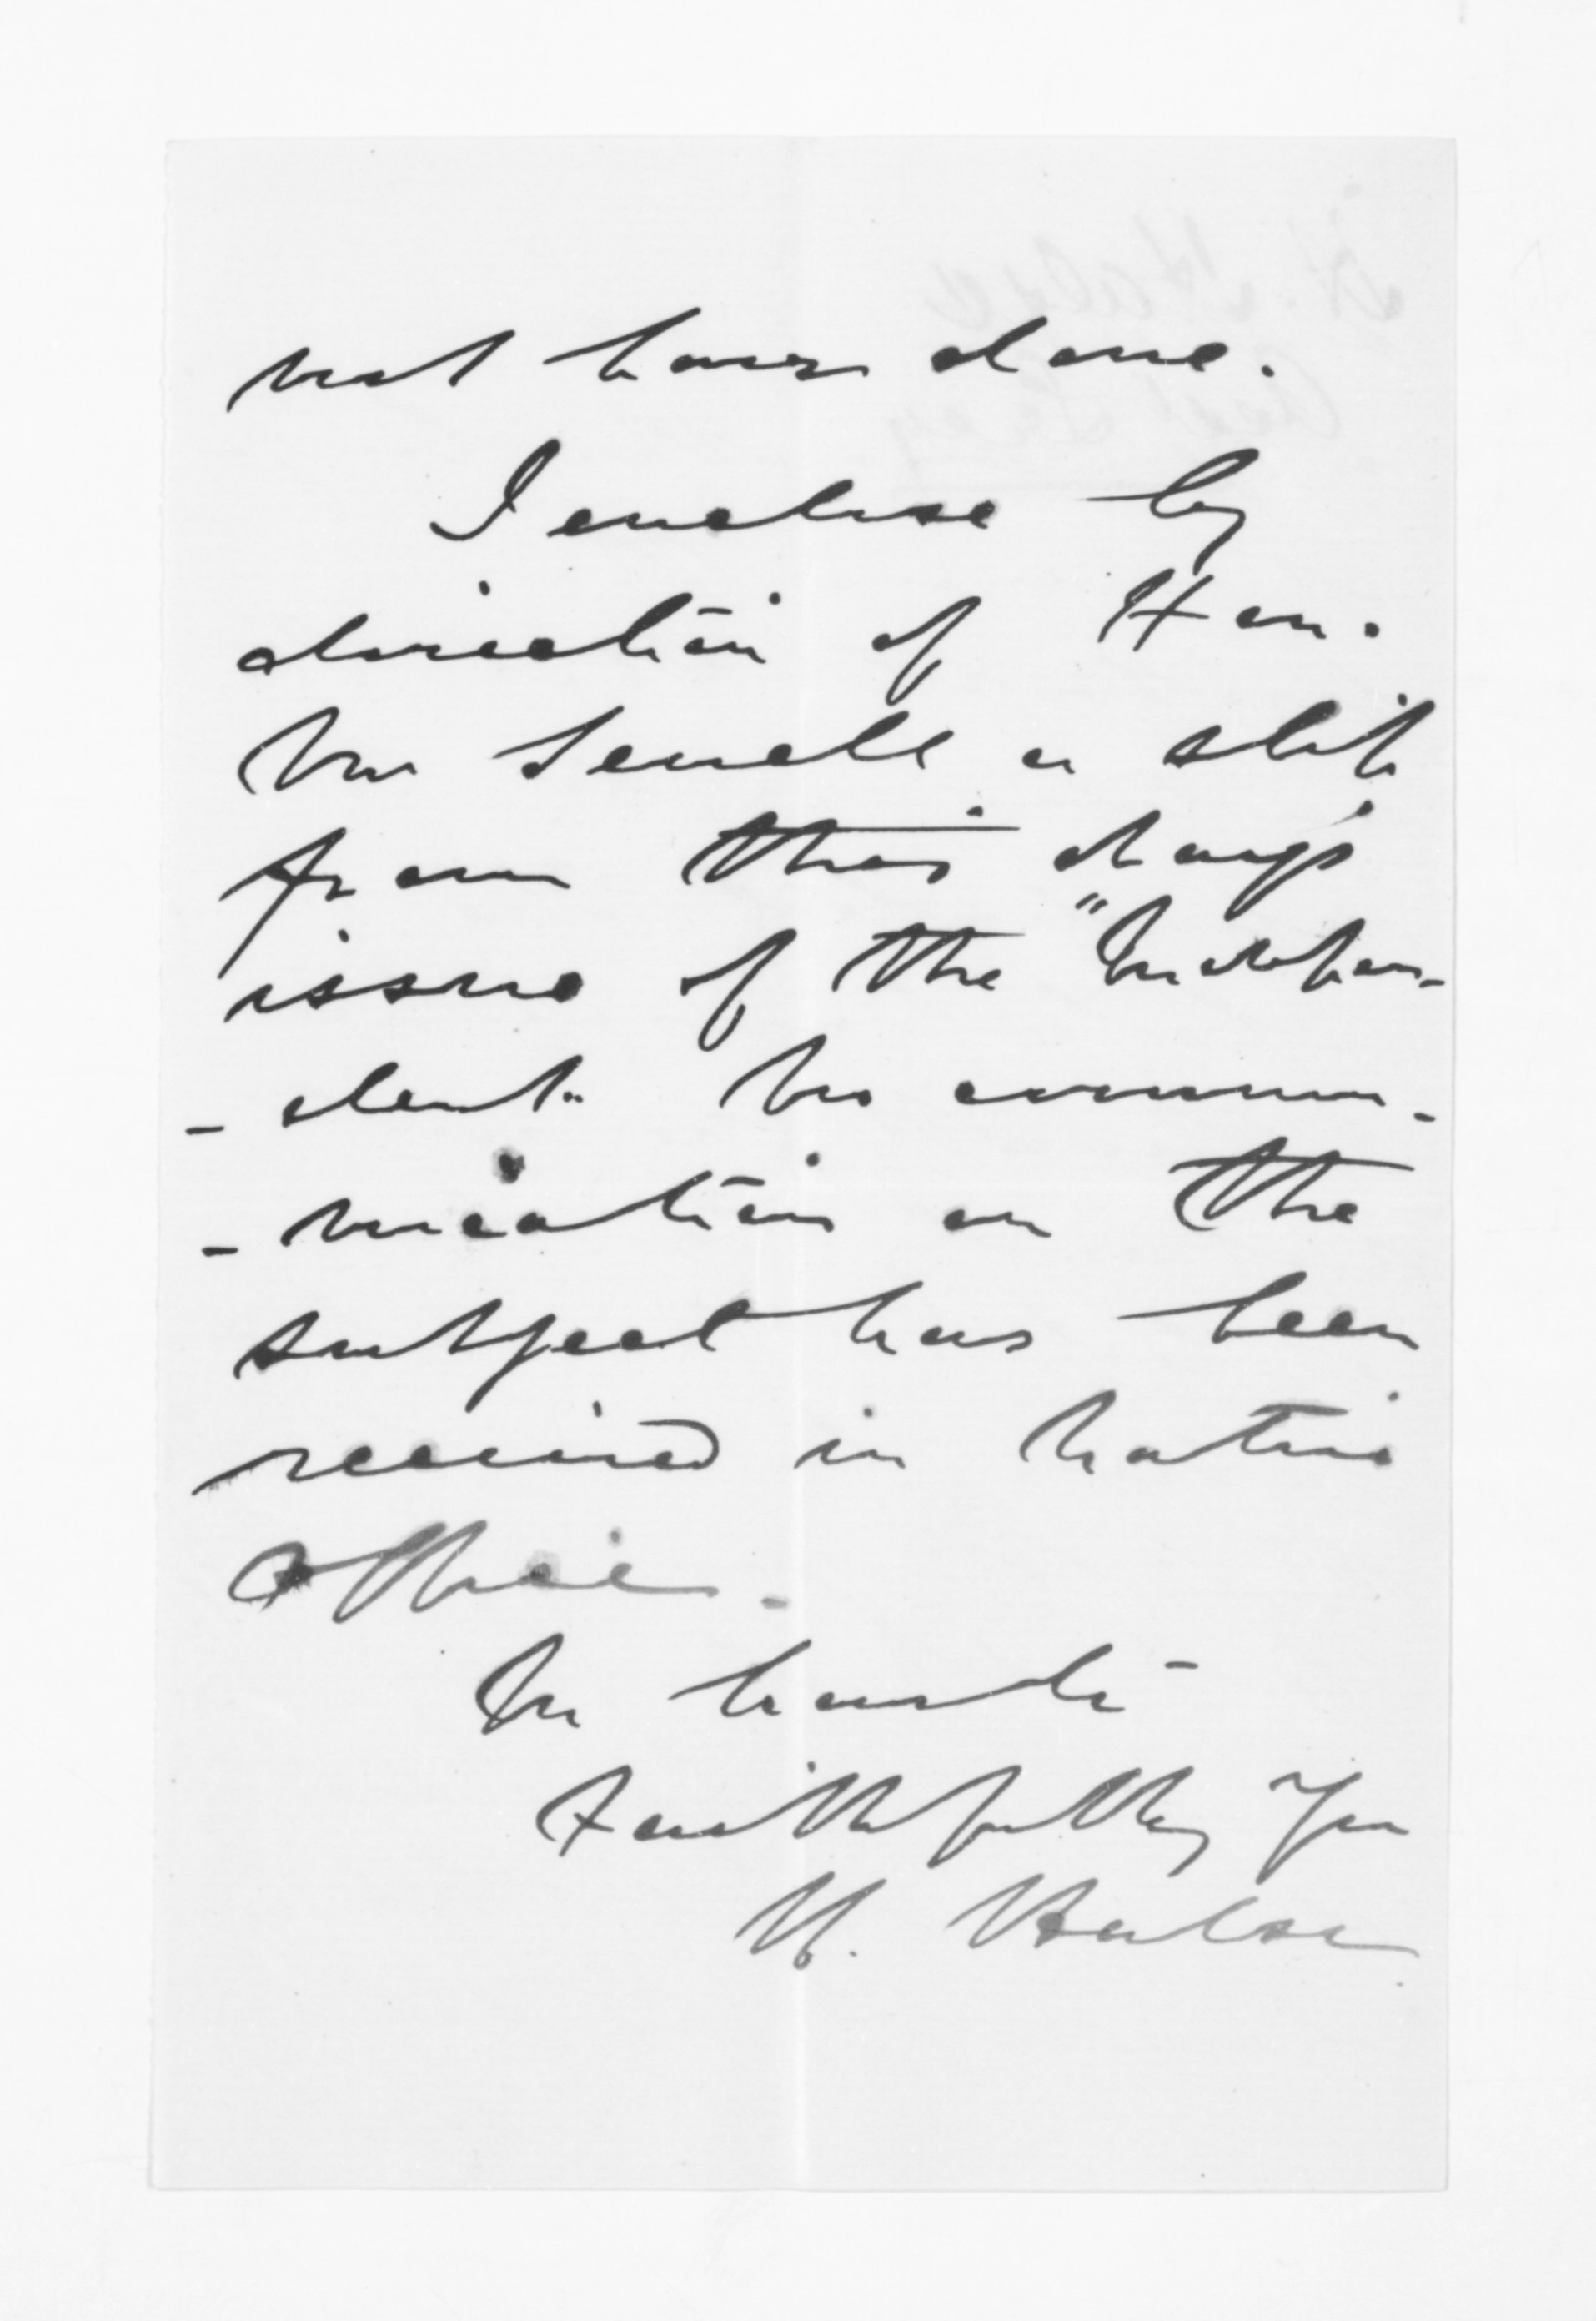 not have done.
I enclose by
direction of Hon.
Mr Sewell a slip
from this day's
issue of the "Indepen-
-dent". No commu-
-nication on the
subject has been
received in Native
Office.
In haste
Faithfully Yrs
H. Halse